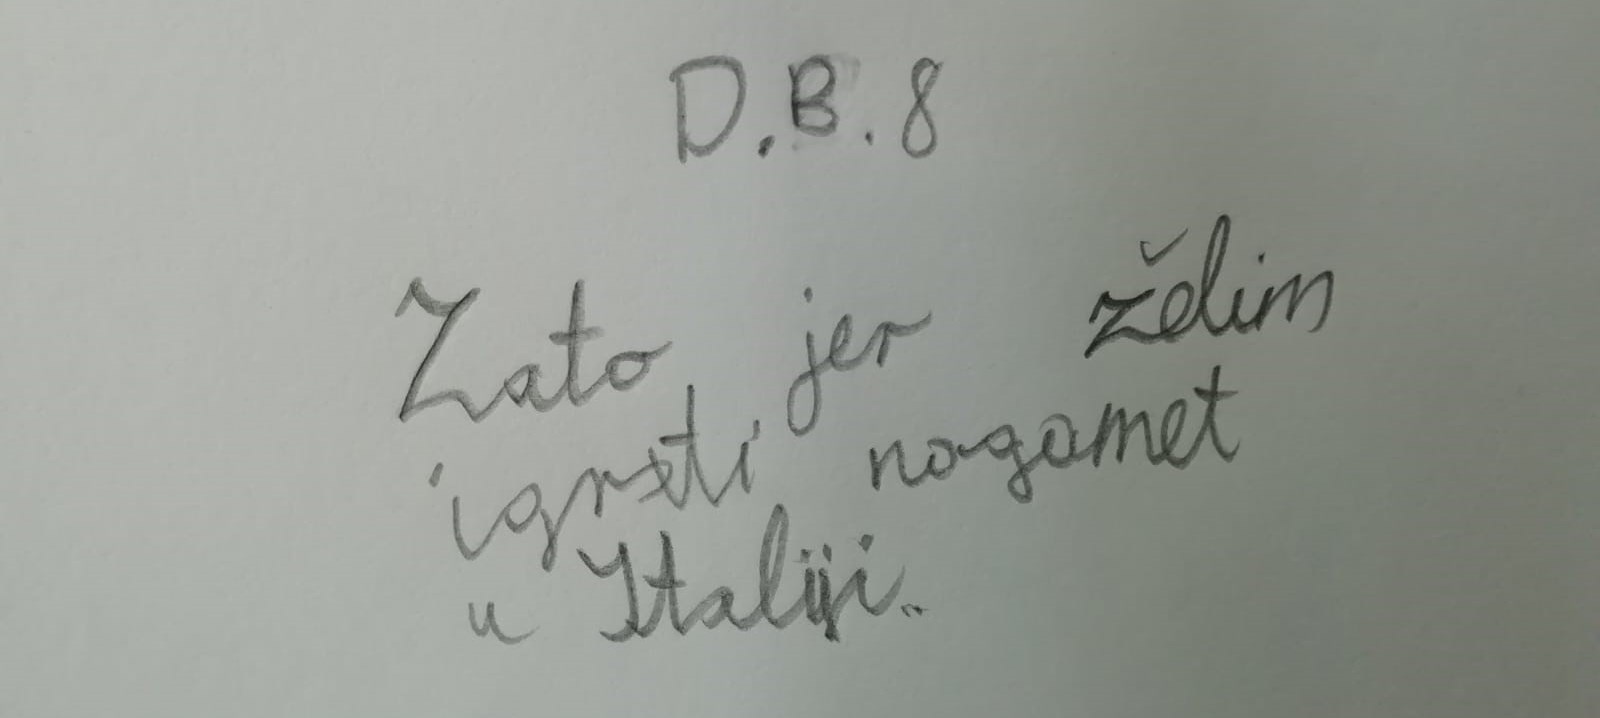 D.B. 8
Zato jer želim
igrati nogomet
u Italiji.